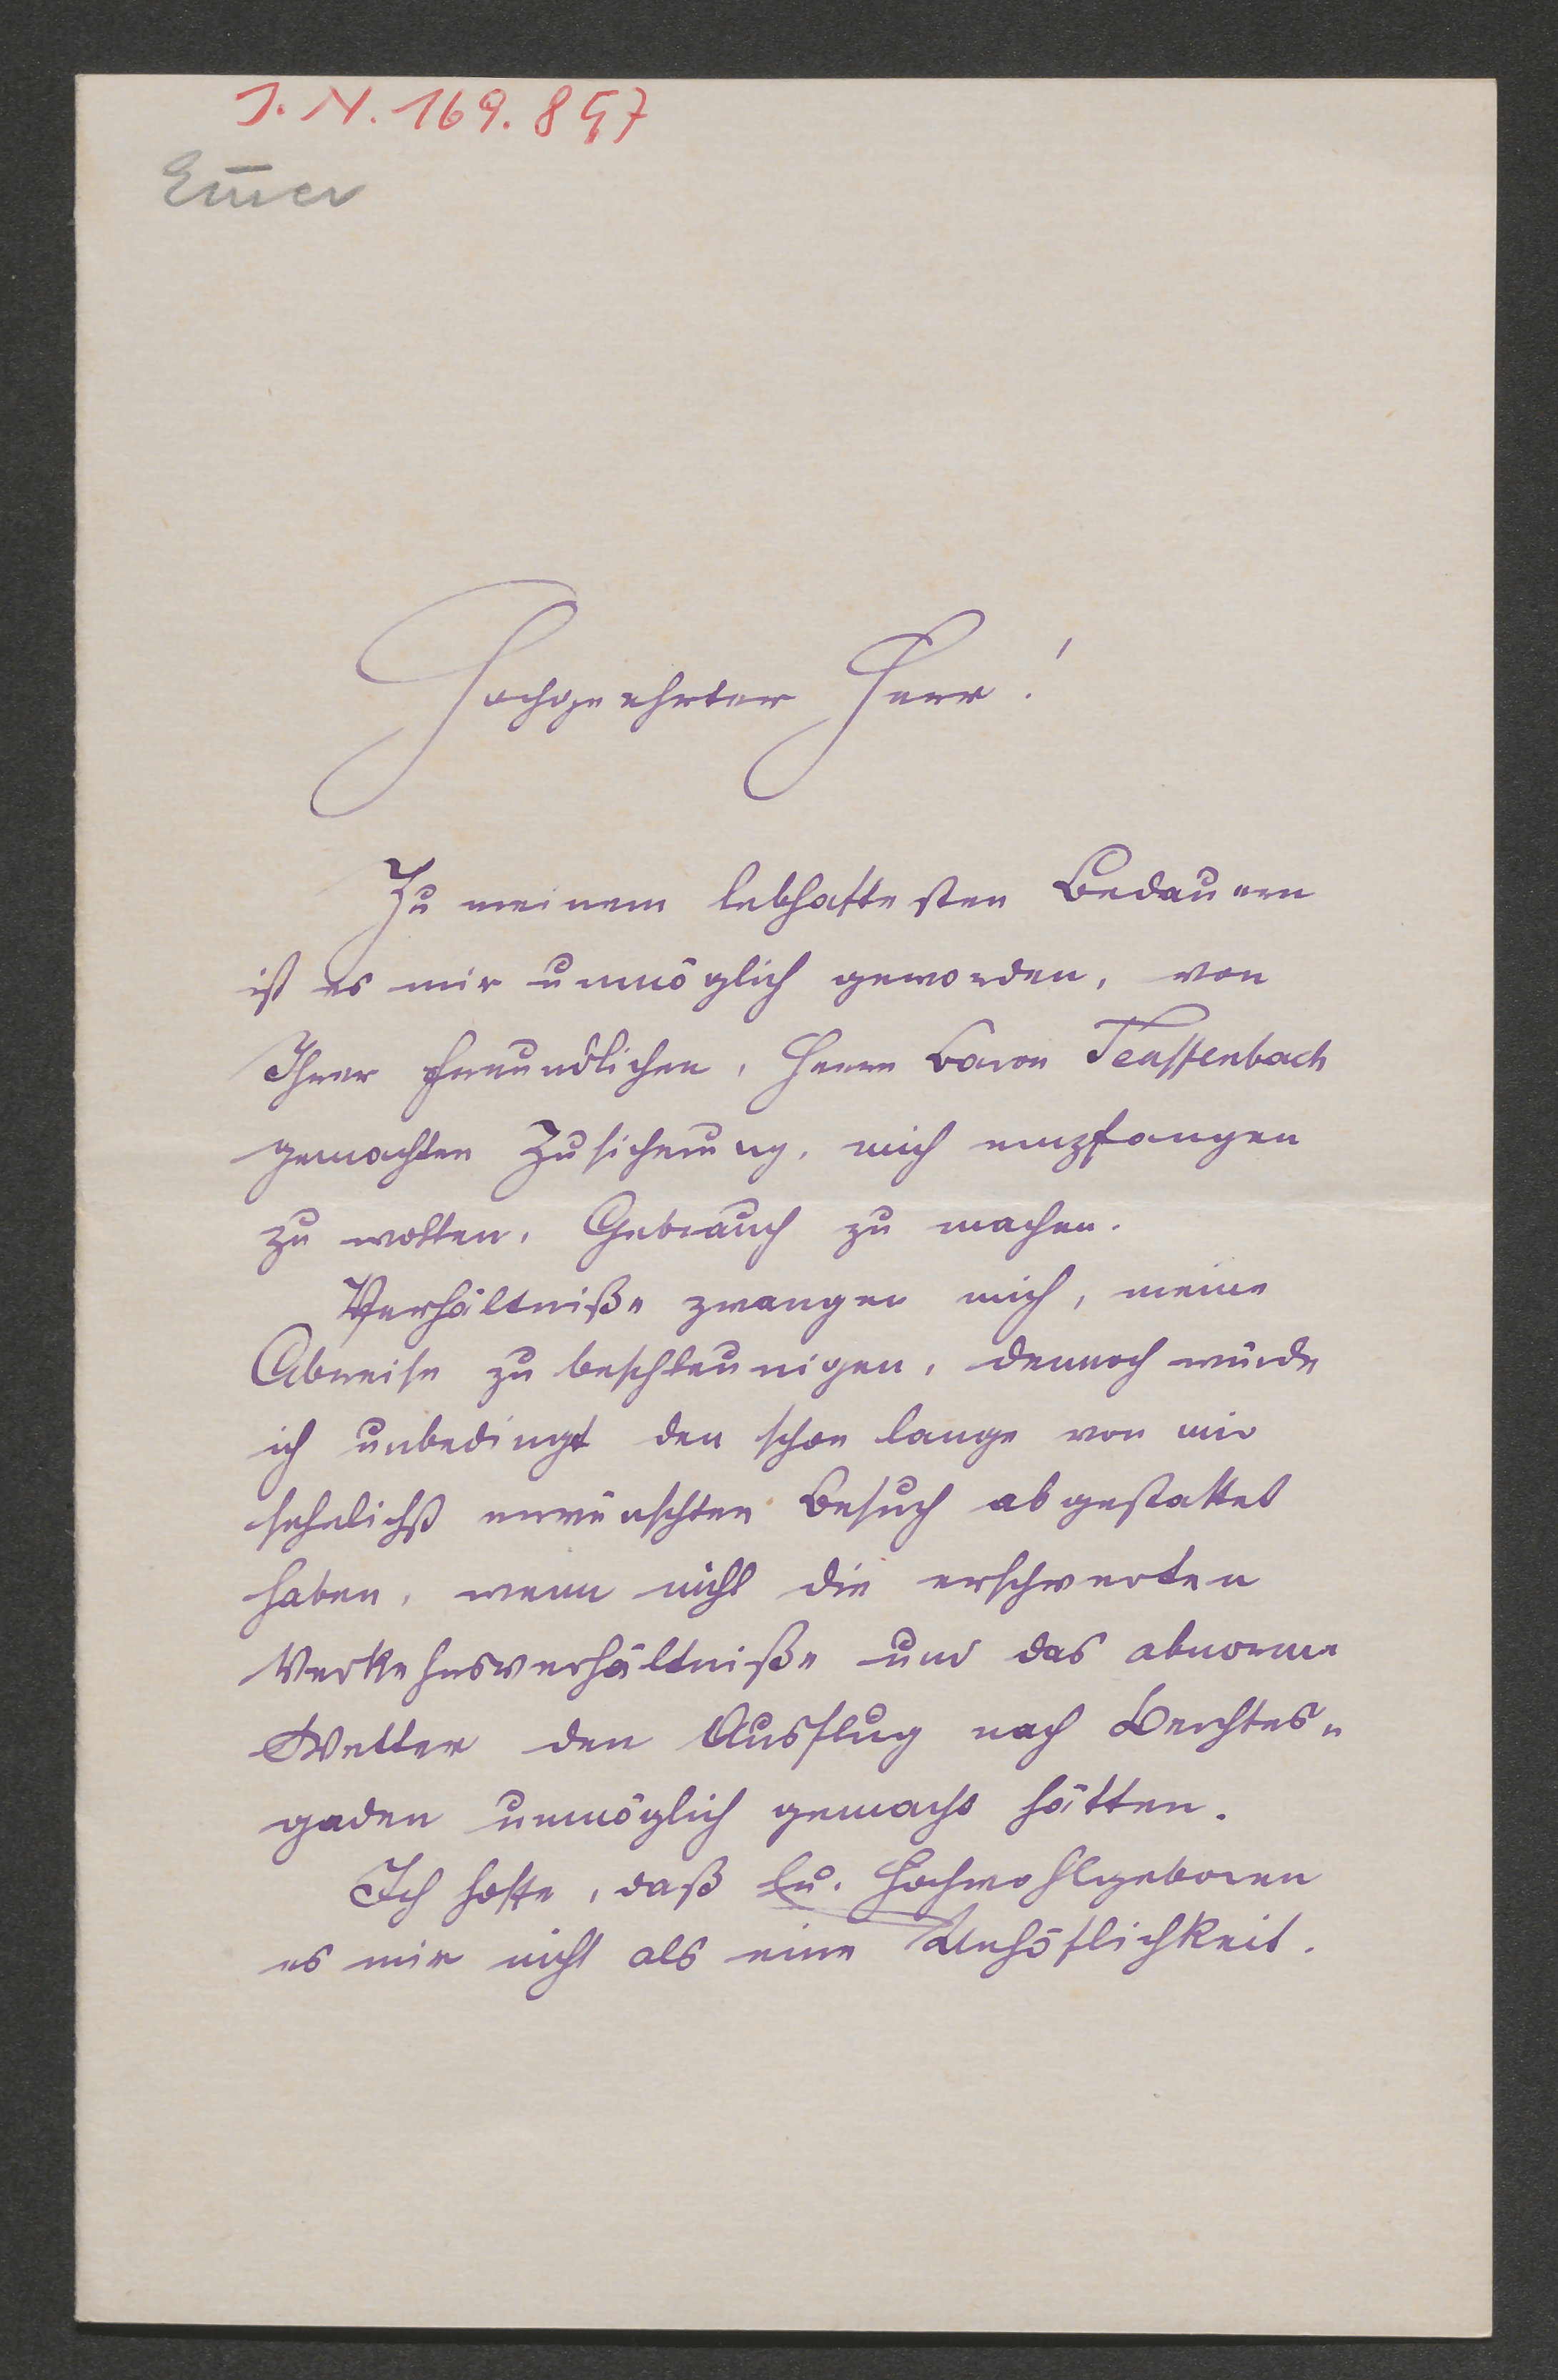 J. N. 169.897
Em̄er
Hochgeehrter Herr!
Zu meinem lebhaftesten Bedauern
ist es mir unmöglich geworden, von
Ihrer freundlichen, Herrn Baron Teuffenbach
gemachten Zusicherung, mich empfangen
zu wollen, Gebrauch zu machen.
Verhältniße zwangen mich, meine
Abreise zu beschleunigen, dennoch würde
ich unbedingt den schon lange von mir
sehnlichst erwünschten Besuch abgestattet
haben, wenn nicht die erschwerten
Verkehrsverhältniße und das abnorme
Wetter den Ausflug nach Berchtes-
gaden unmöglich gemacht hätten.
Ich hoffe, daß Eu. Hochwohlgeboren
es mir nicht als eine Unhöflichkeit.